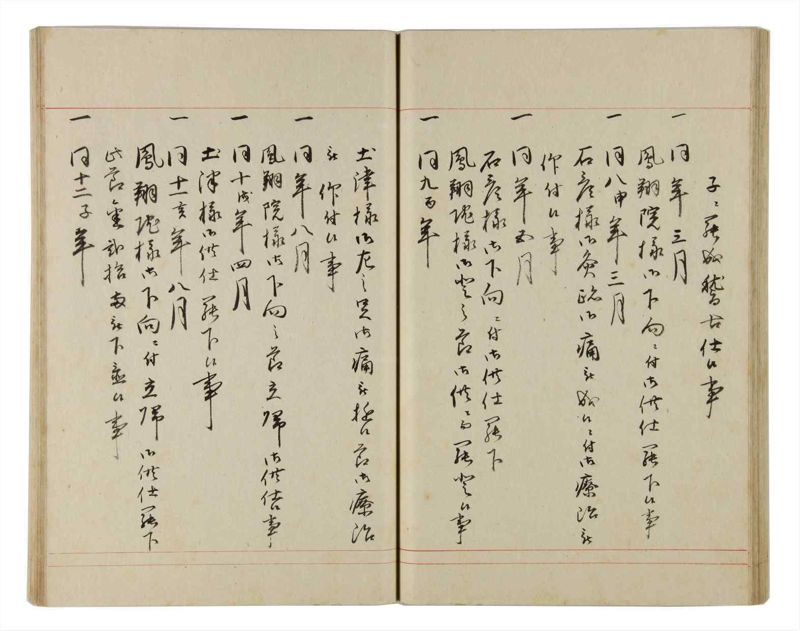 子ニ罷成稽古仕候事
一 同年三月
鳳翔院様御下向ニ付御供仕罷下候事
一 同八申年三月
石彦様御灸跡御痛被成候ニ付御療治被
仰付候事
一 同年五月
石彦様御下向ニ付御供仕罷下
一 同九酉年
鳳翔院様御登之節御供ニ而罷登候事
土津様御左之御痛被遊候節御療治
被 仰付候事
一 同年八月
鳳翔院様御下向之節立帰御供仕事
一 同十戌年四月
土津様御供仕罷下候事
一 同十一亥年八月
鳳翔院様御下向ニ付立帰御供仕罷下
此節金弐拾両被下置候事
一 同十二子年